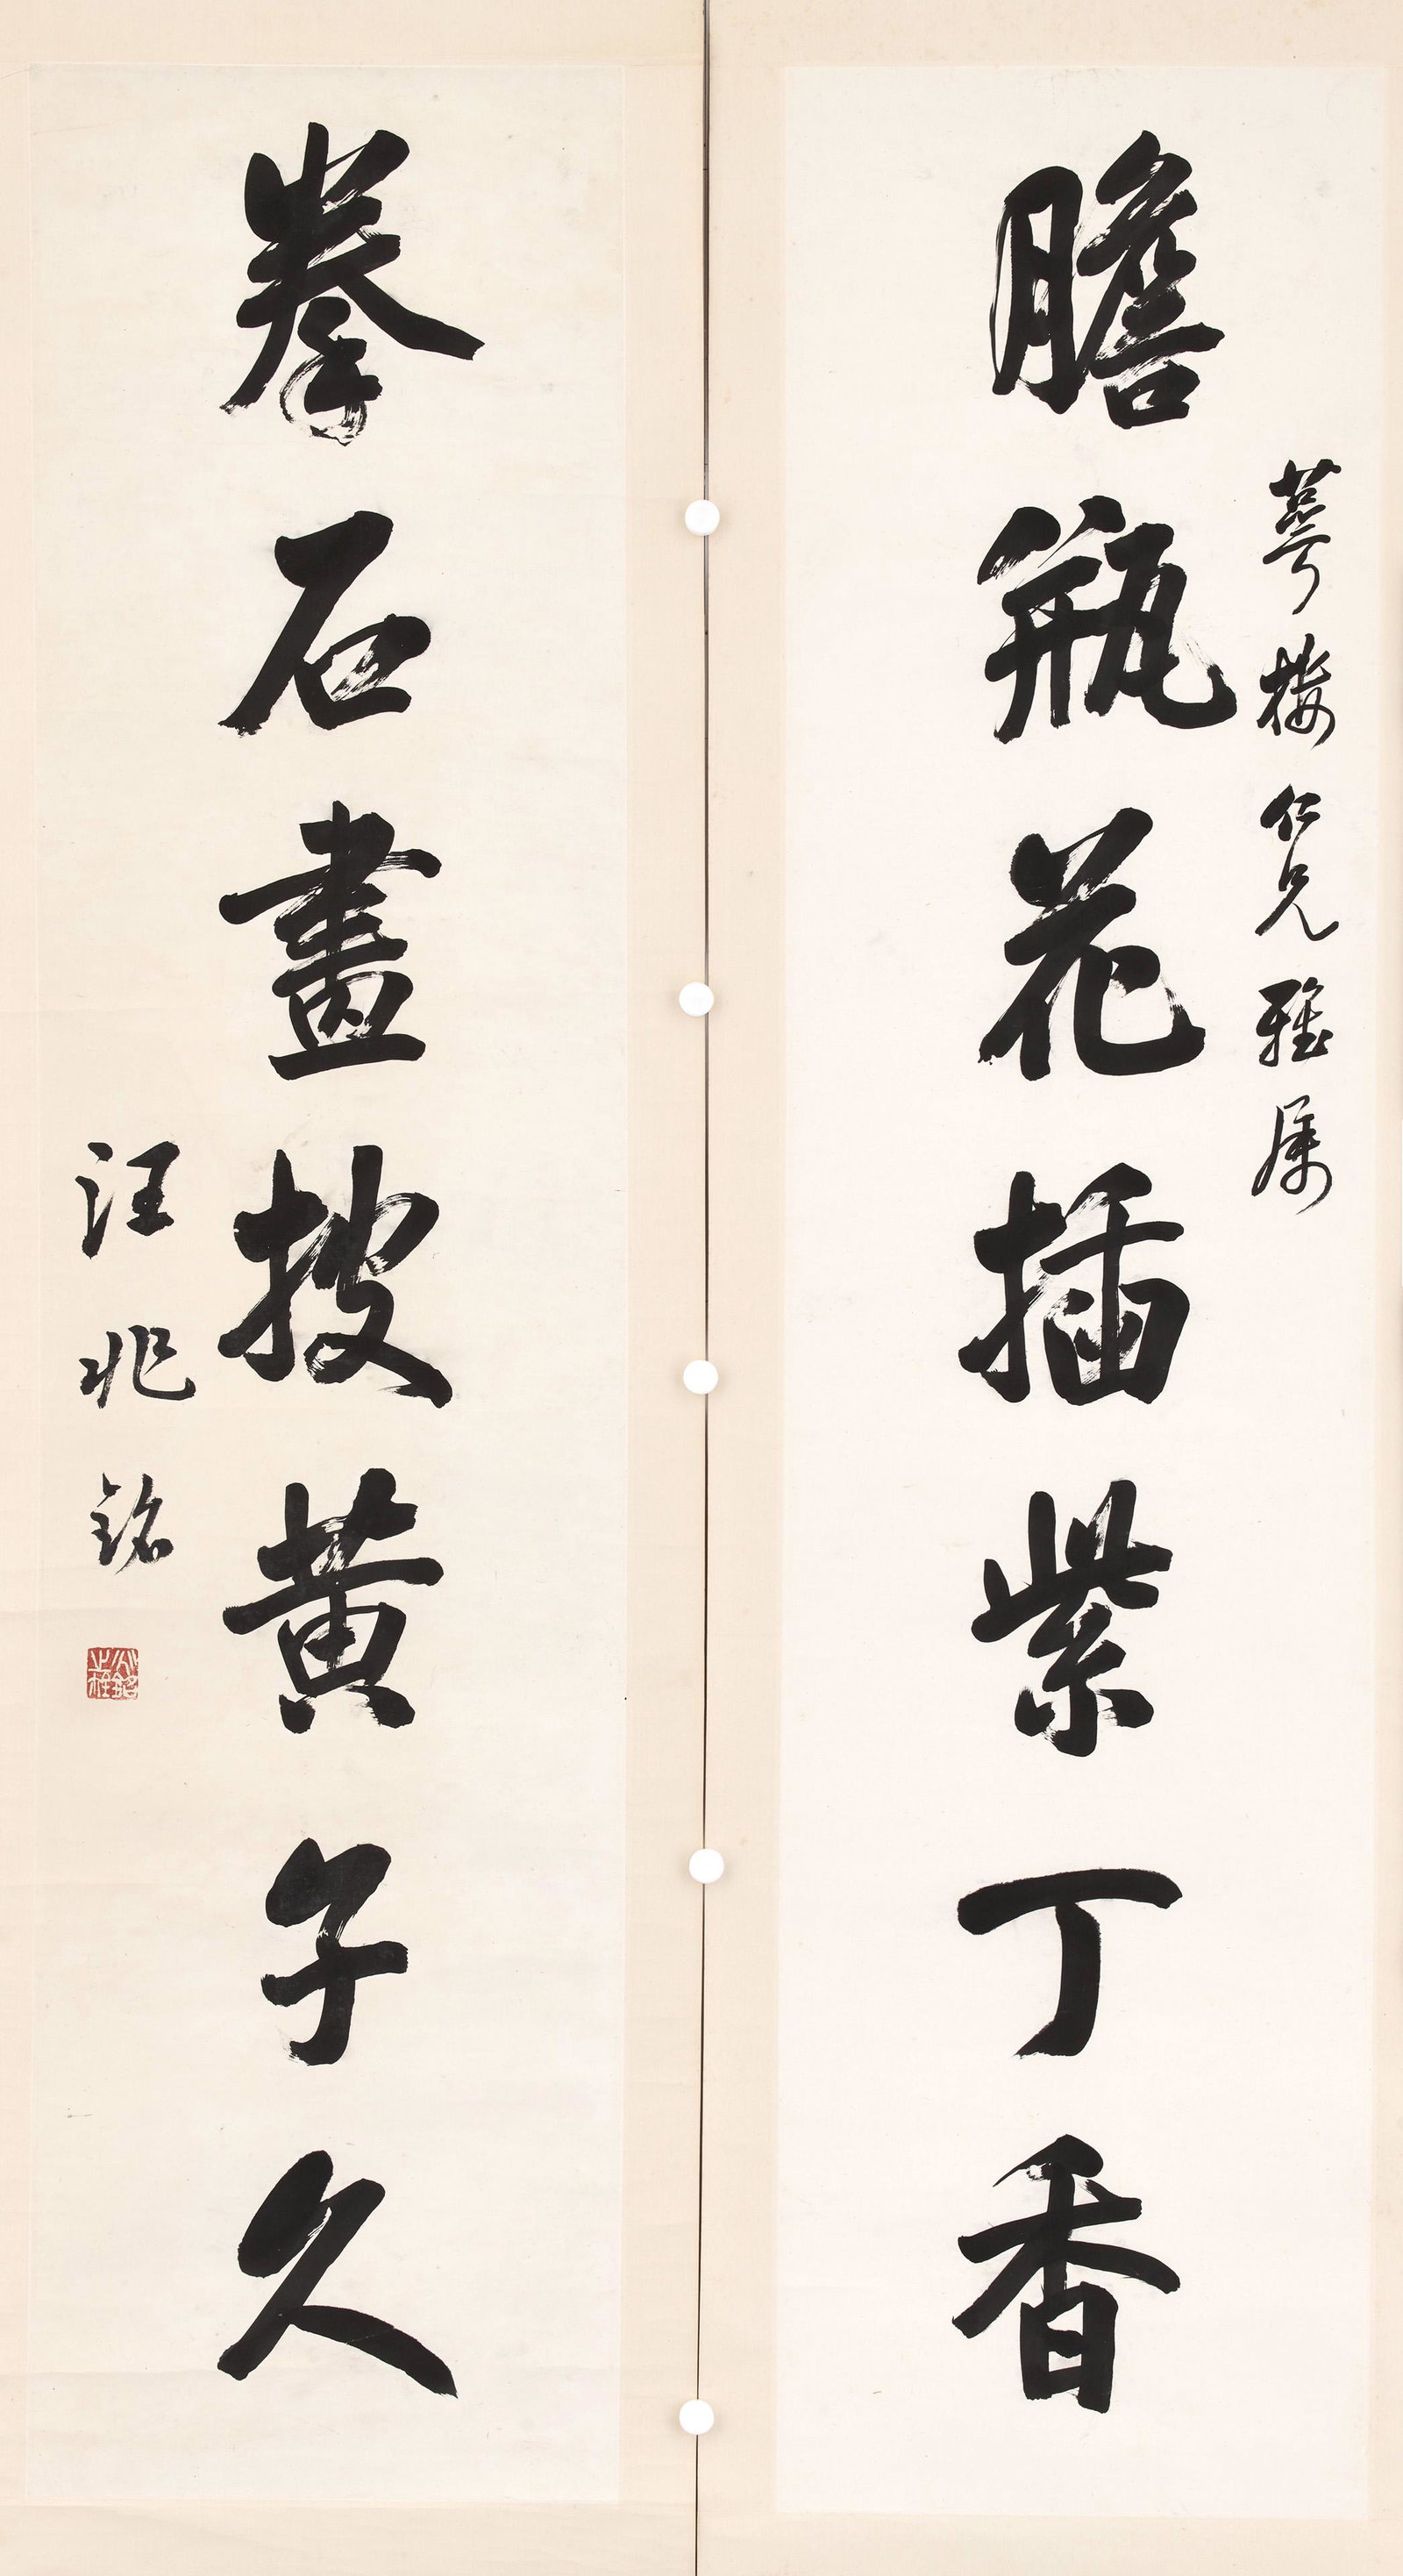 萼樓仁兄雅属
膽瓶花插紫丁香
拳石畫披黄子久
汪兆銘